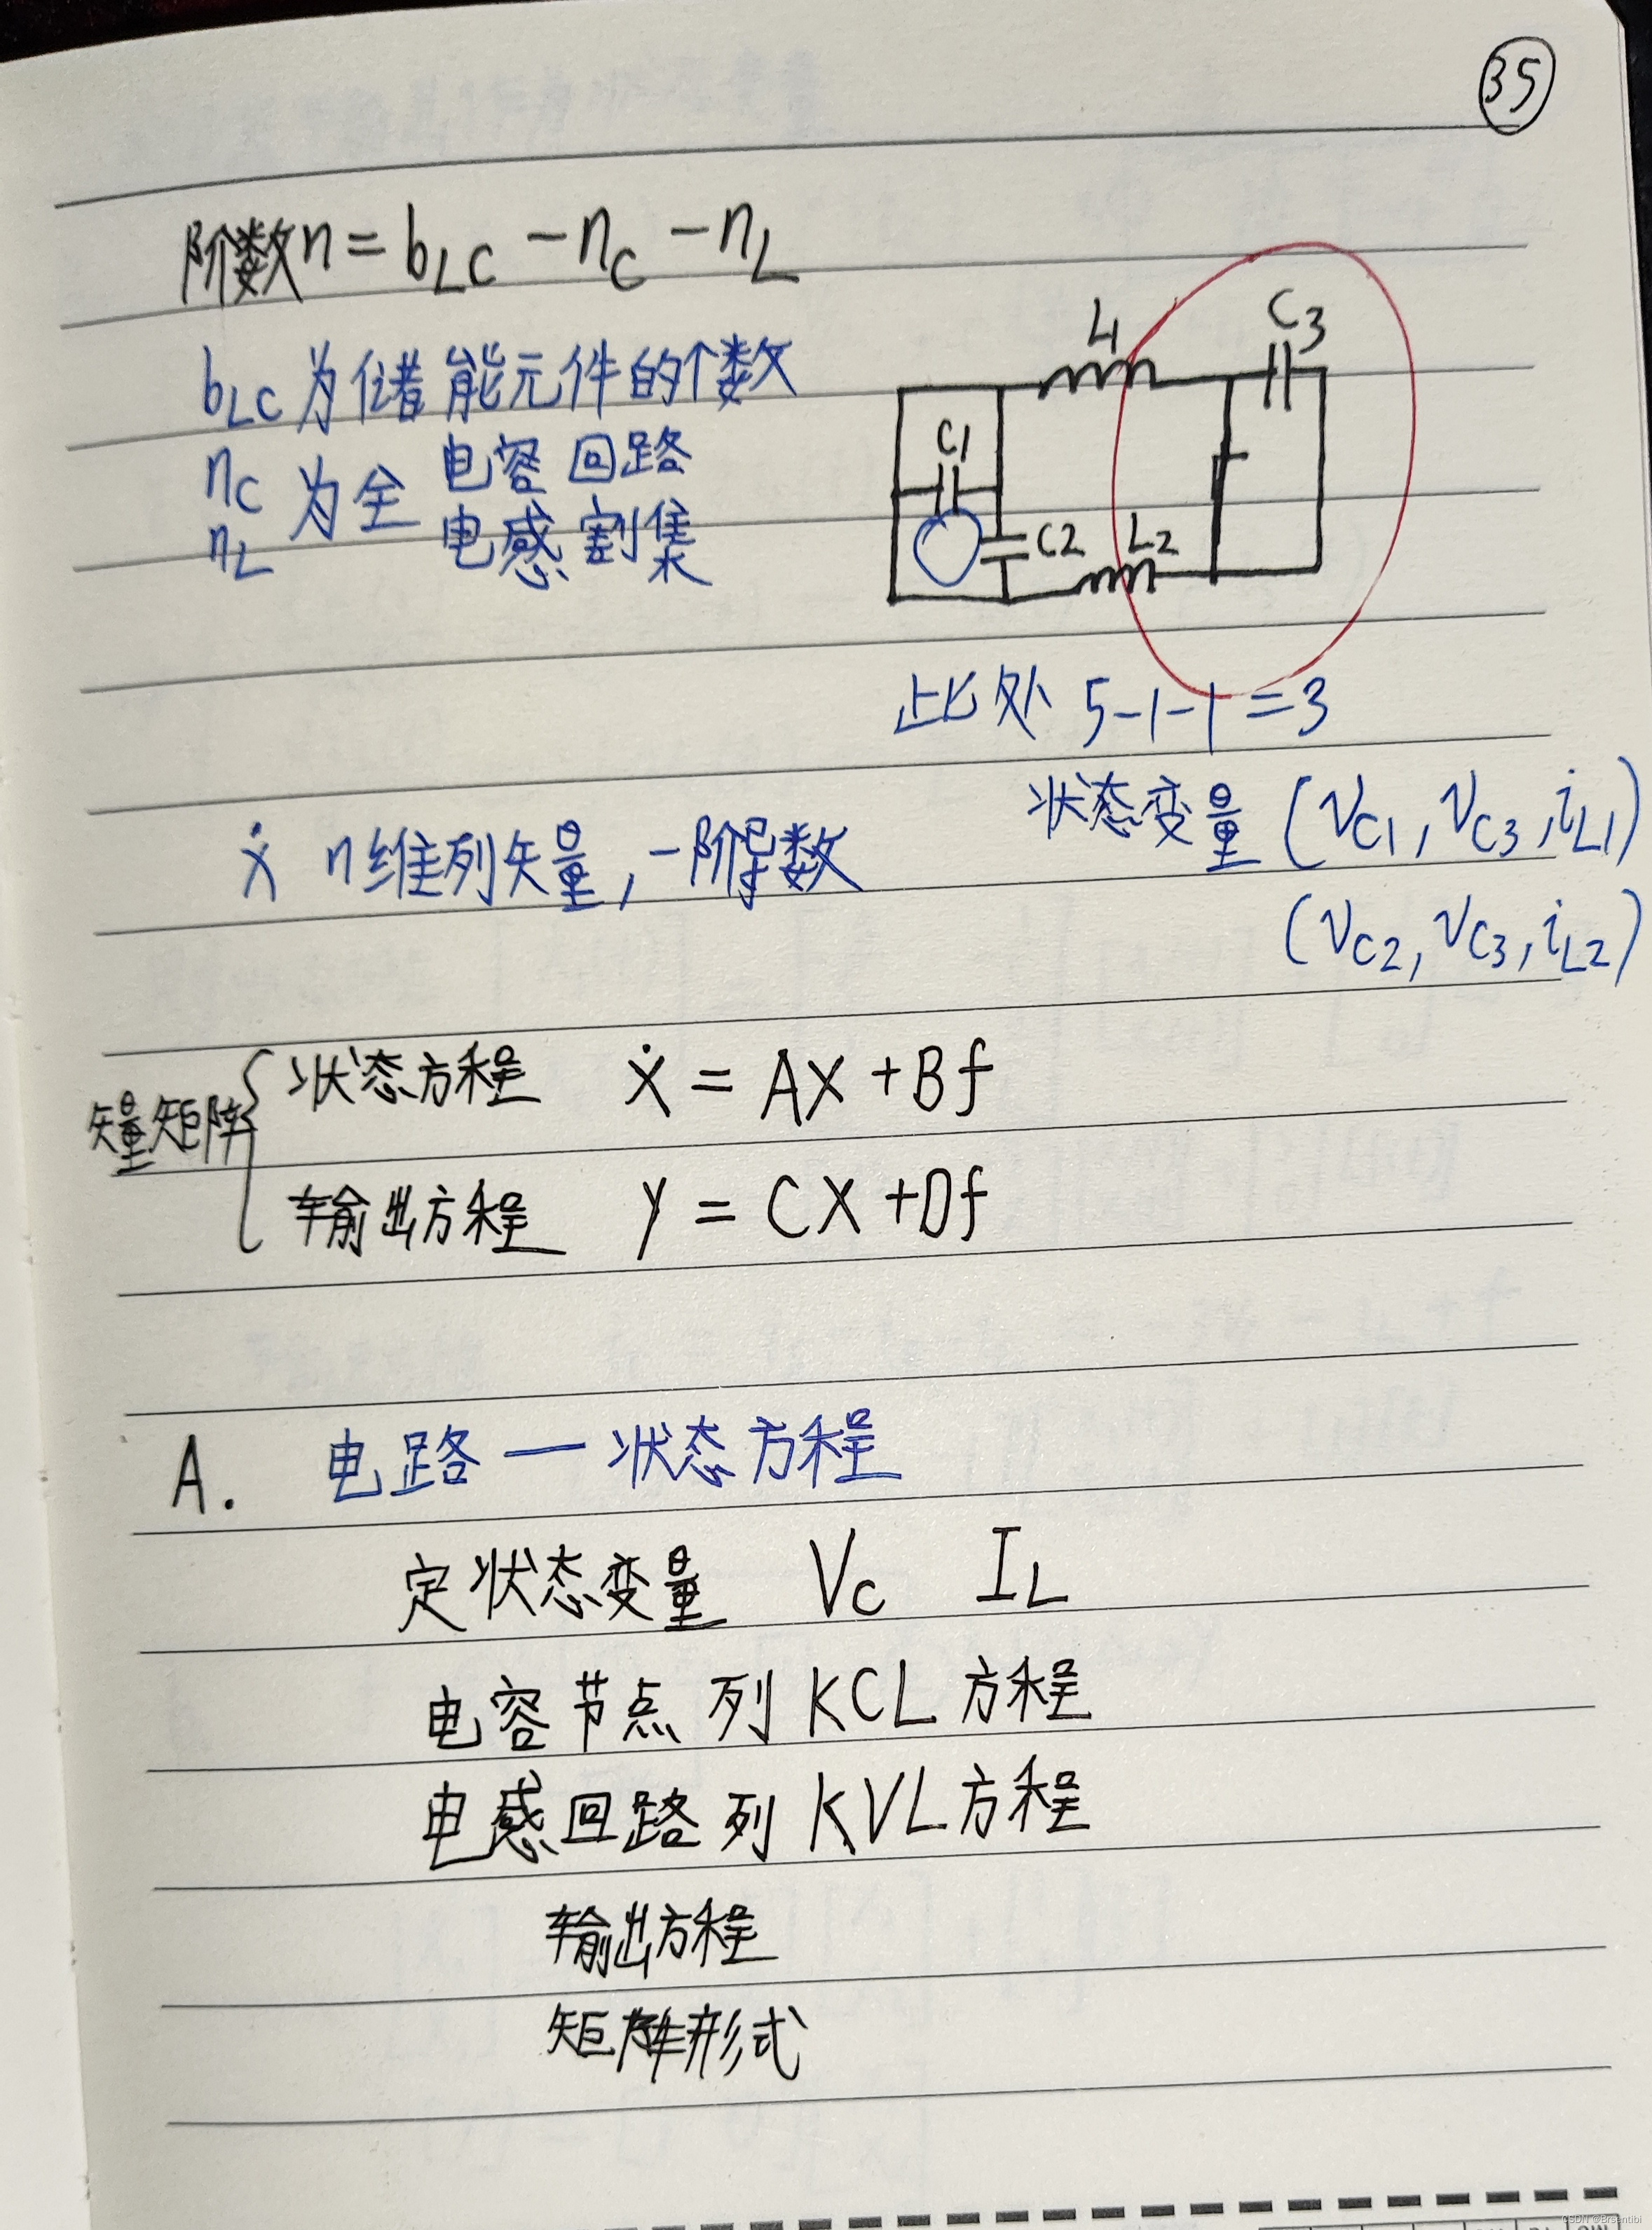 35
阶数n = bLC - nC - nL
bLC 为储能元件的个数
nC 电容回路
为全
nL 电感割集
L1
C3
C1
C2
L2
此处 5-1-1=3
状态变量 (VC1, VC3, iL1)
(VC2, VC3, iL2)
ẋ n维列矢量, 一阶导数
矢量矩阵
状态方程 ẋ = AX + Bf
输出方程 y = CX + Df
A. 电路 — 状态方程
定状态变量 VC IL
电容节点 列 KCL 方程
电感回路 列 KVL 方程
输出方程
矩阵形式
CSDN @Brsentibi